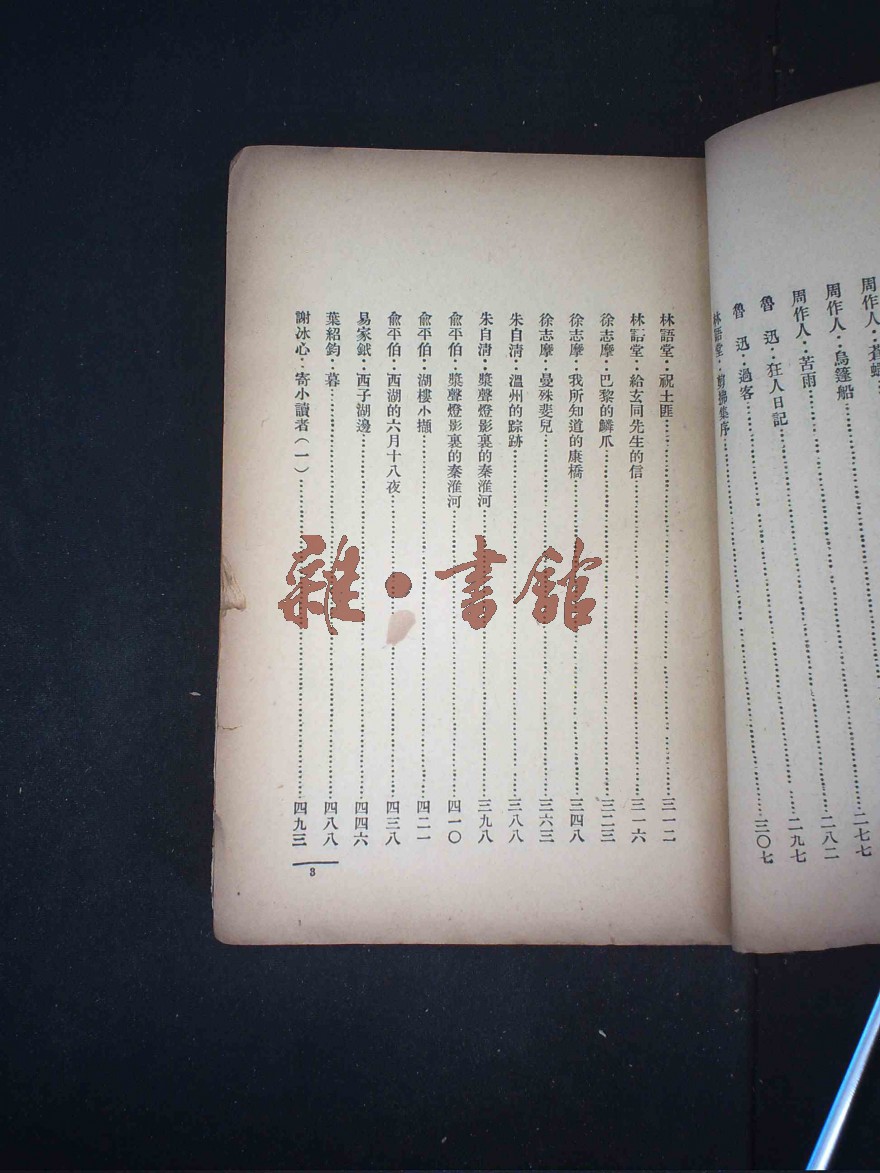 周作人：蒼
周作人：烏篷船……二七七
周作人：苦雨……二八二
魯　迅：狂人日記……二九七
魯　迅：過客……三〇七
林語堂：剪拂集序……
林語堂：祝土匪……三一二
林語堂：給玄同先生的信……三一六
徐志摩：巴黎的鱗爪……三二三
徐志摩：我所知道的康橋……三四八
徐志摩：曼殊斐兒……三六三
朱自清：溫州的踪跡……三八八
朱自清：槳聲燈影裏的秦淮河……三九八
兪平伯：槳聲燈影裏的秦淮河……四一〇
兪平伯：湖樓小擷……四二一
兪平伯：西湖的六月十八夜……四三八
易家鉞：西子湖邊……四四六
葉紹鈞：暮……四八八
謝冰心：寄小讀者（一）……四九三
3
雜·書館